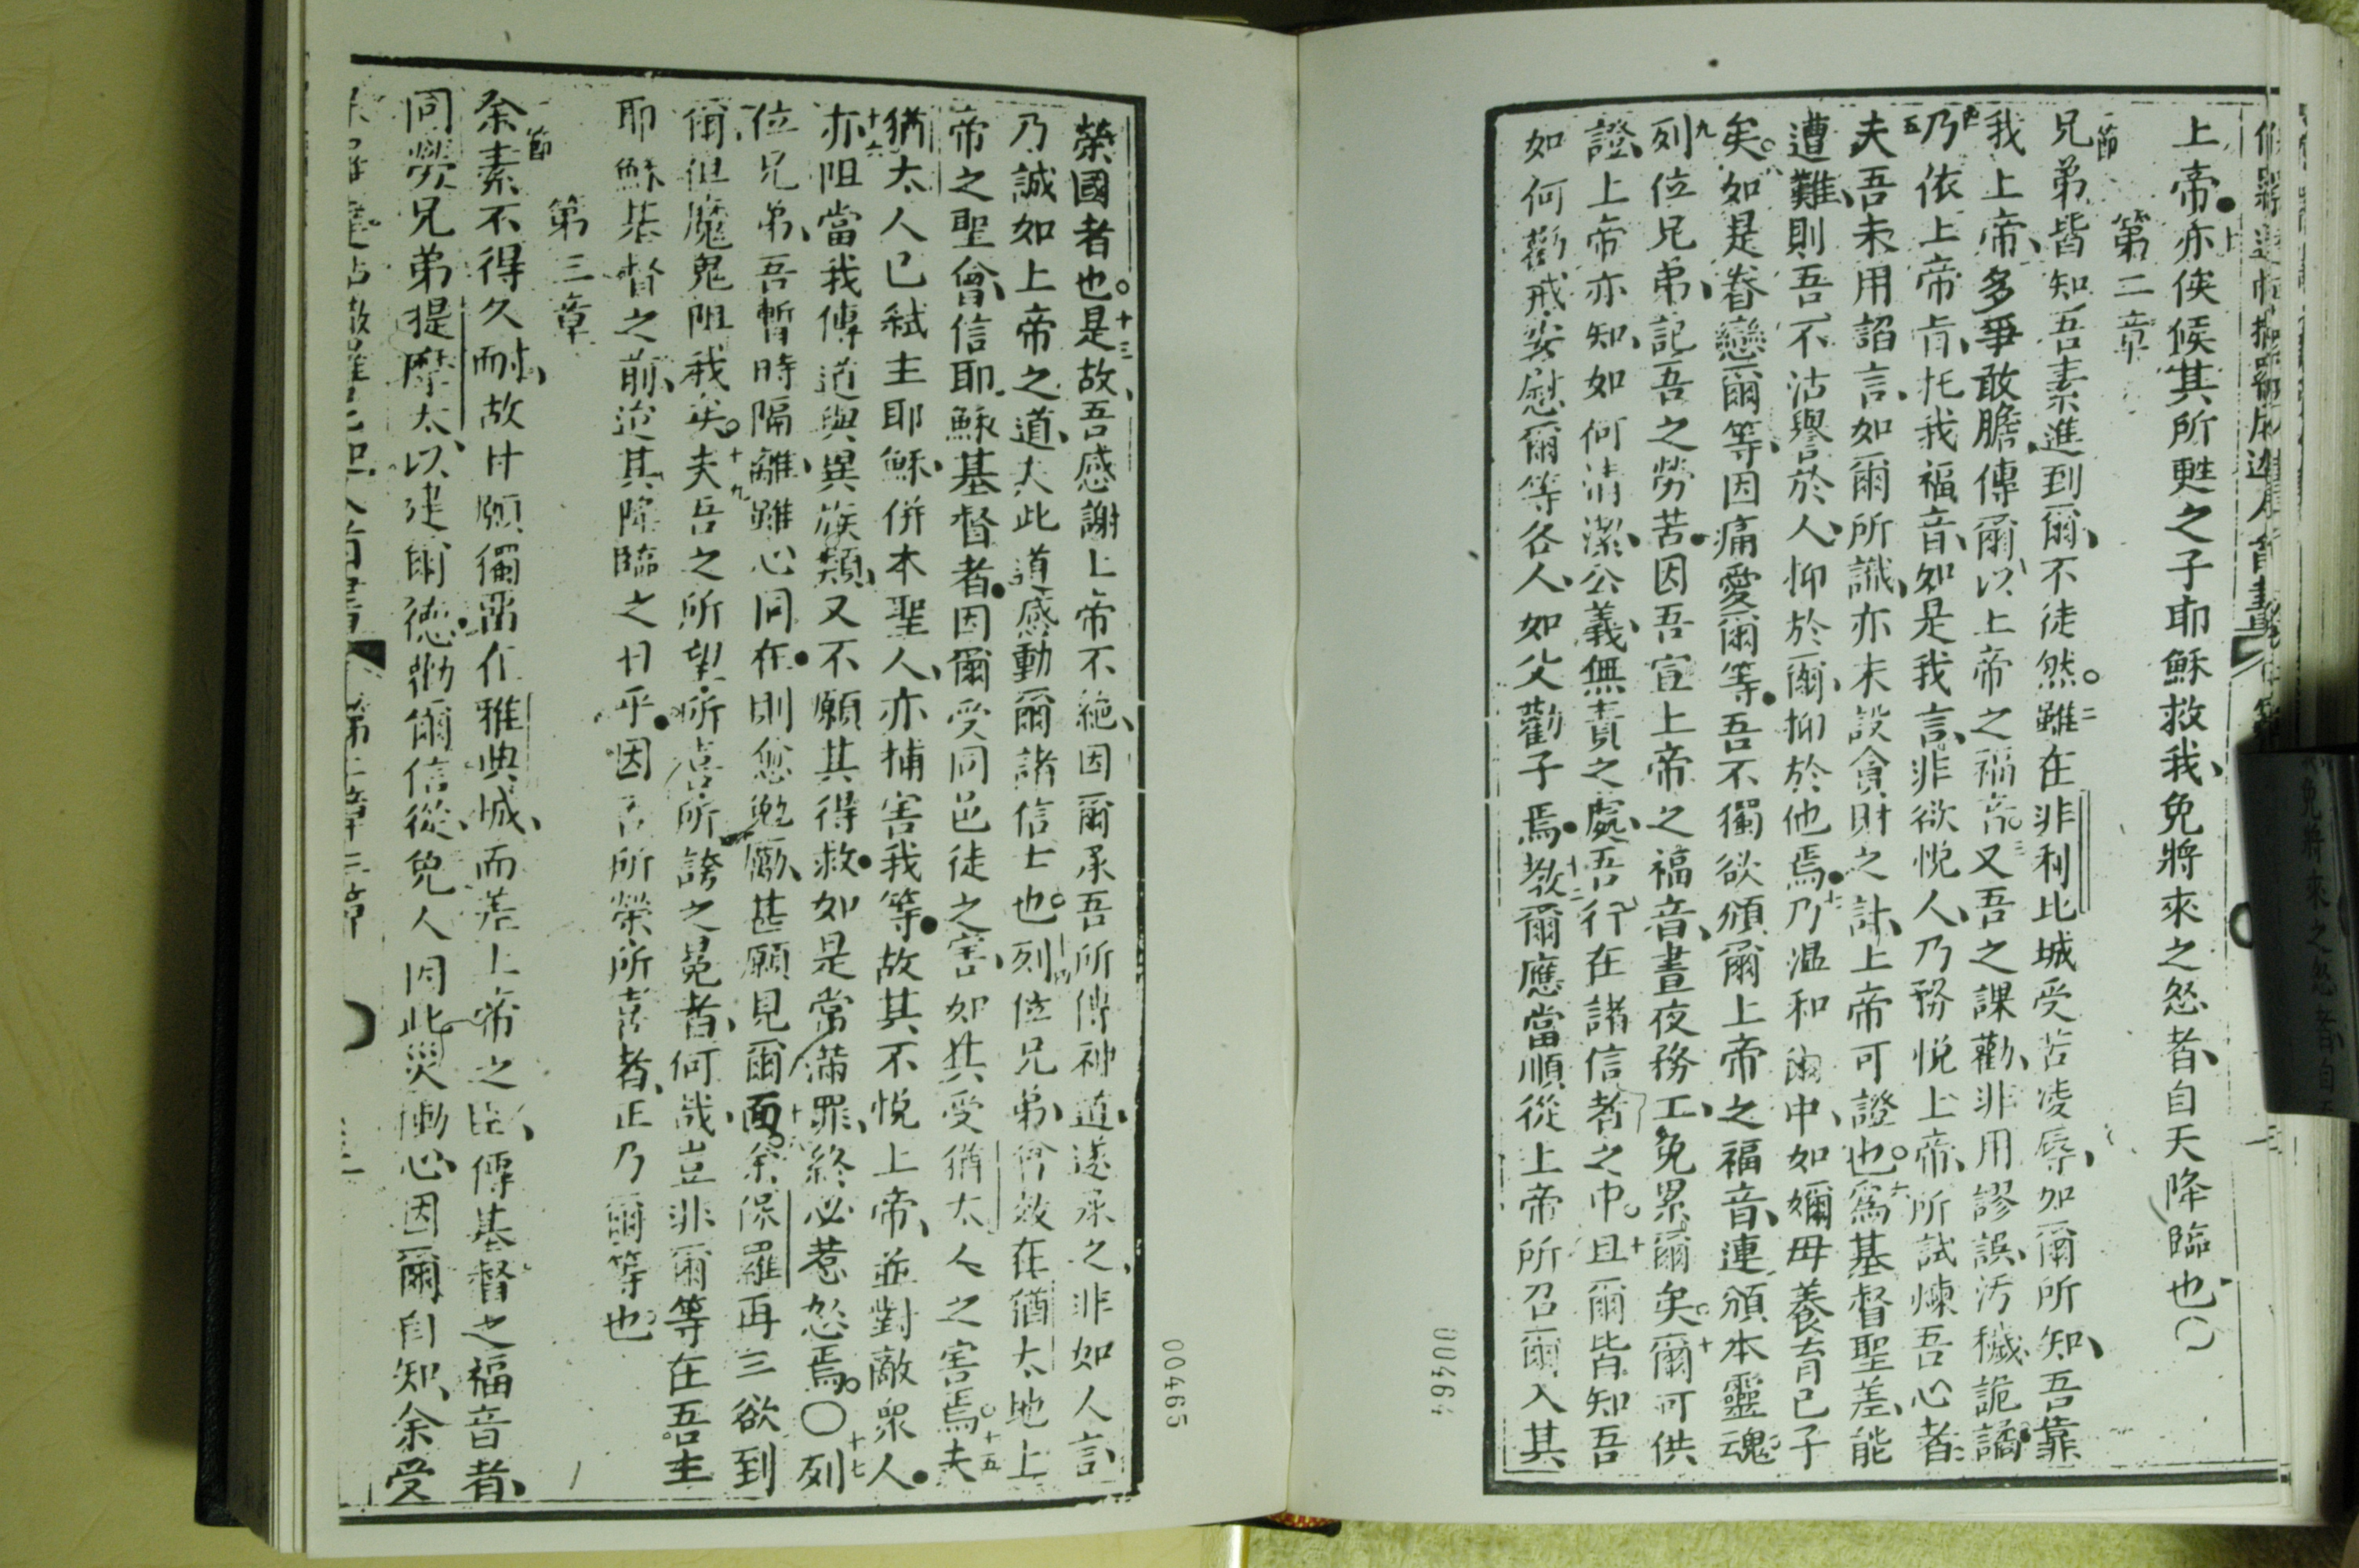 上帝亦俟候其所甦之子耶穌救我免將來之怒者自天降臨也〇
第二章
一節
兄弟皆知吾素進到爾不徒然二雖在非利比城受苦凌辱如爾所知吾靠
我上帝多爭敢膽傳爾以上帝之福音三又吾之課勸非用謬誤汚穢詭譎
四乃依上帝肯托我福音如是我言非欲悅人乃務悅上帝所試煉吾心者
五夫吾未用諂言如爾所識亦未設貪財之計上帝可證也六為基督聖差能
遭難則吾不沽譽於人抑於爾抑於他焉七乃温和爾中如嬭母養育己子
矣八如是眷戀爾等因痛愛爾等吾不獨欲頒爾上帝之福音連頒本靈魂
九列位兄弟記吾之勞苦因吾宣上帝之福音晝夜務工免累爾矣十爾可供
證上帝亦知如何清潔公義無責之處吾行在諸信者之中十一且爾皆知吾
如何勸戒安慰爾等各人如父勸子焉十二教爾應當順從上帝所召爾入其
00464
榮國者也十三是故吾感謝上帝不絶因爾承吾所傳神道遂承之非如人言
乃誠如上帝之道夫此道感動爾諸信士也十四列位兄弟曾效在猶太地上
帝之聖會信耶穌基督者因爾受同邑徒之害如其受猶太人之害焉十五夫
猶太人已弒主耶穌併本聖人亦捕害我等故其不悅上帝並對敵衆人
十六亦阻當我傳道與異族類又不願其得救如是常滿罪終必惹怒焉〇十七列
位兄弟吾暫時隔離雖心同在則愈勉勵甚願見爾面十八余保羅再三欲到
爾但魔鬼阻我矣十九夫吾之所望所喜所誇之冕者何哉豈非爾等在吾主
耶穌基督之前迨其降臨之日乎因吾所榮所喜者正乃爾等也
第三章
節
余素不得久耐故甘願獨留在雅典城而差上帝之臣傳基督之福音者
同勞兄弟提摩太以建爾德勸爾信從免人因此災働心因爾自知余受
00465